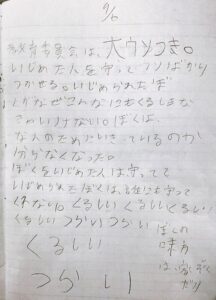 9/6
教育委員会は、大ウソつき。
いじめた人を守ってウソばかり
つかせる。いじめられたぼ
くがなぜこんなにもくるしまな
きゃいけない。ぼくは、
なんのためにいきているのか
分からなくなった。
ぼくをいじめた人は守ってて
いじめられたぼくは、誰にも守って
くれない。くるしい くるしい くるしい
くるしい つらい つらい
くるしい
つらい
ぼくの
味方
は家ぞく
だけ